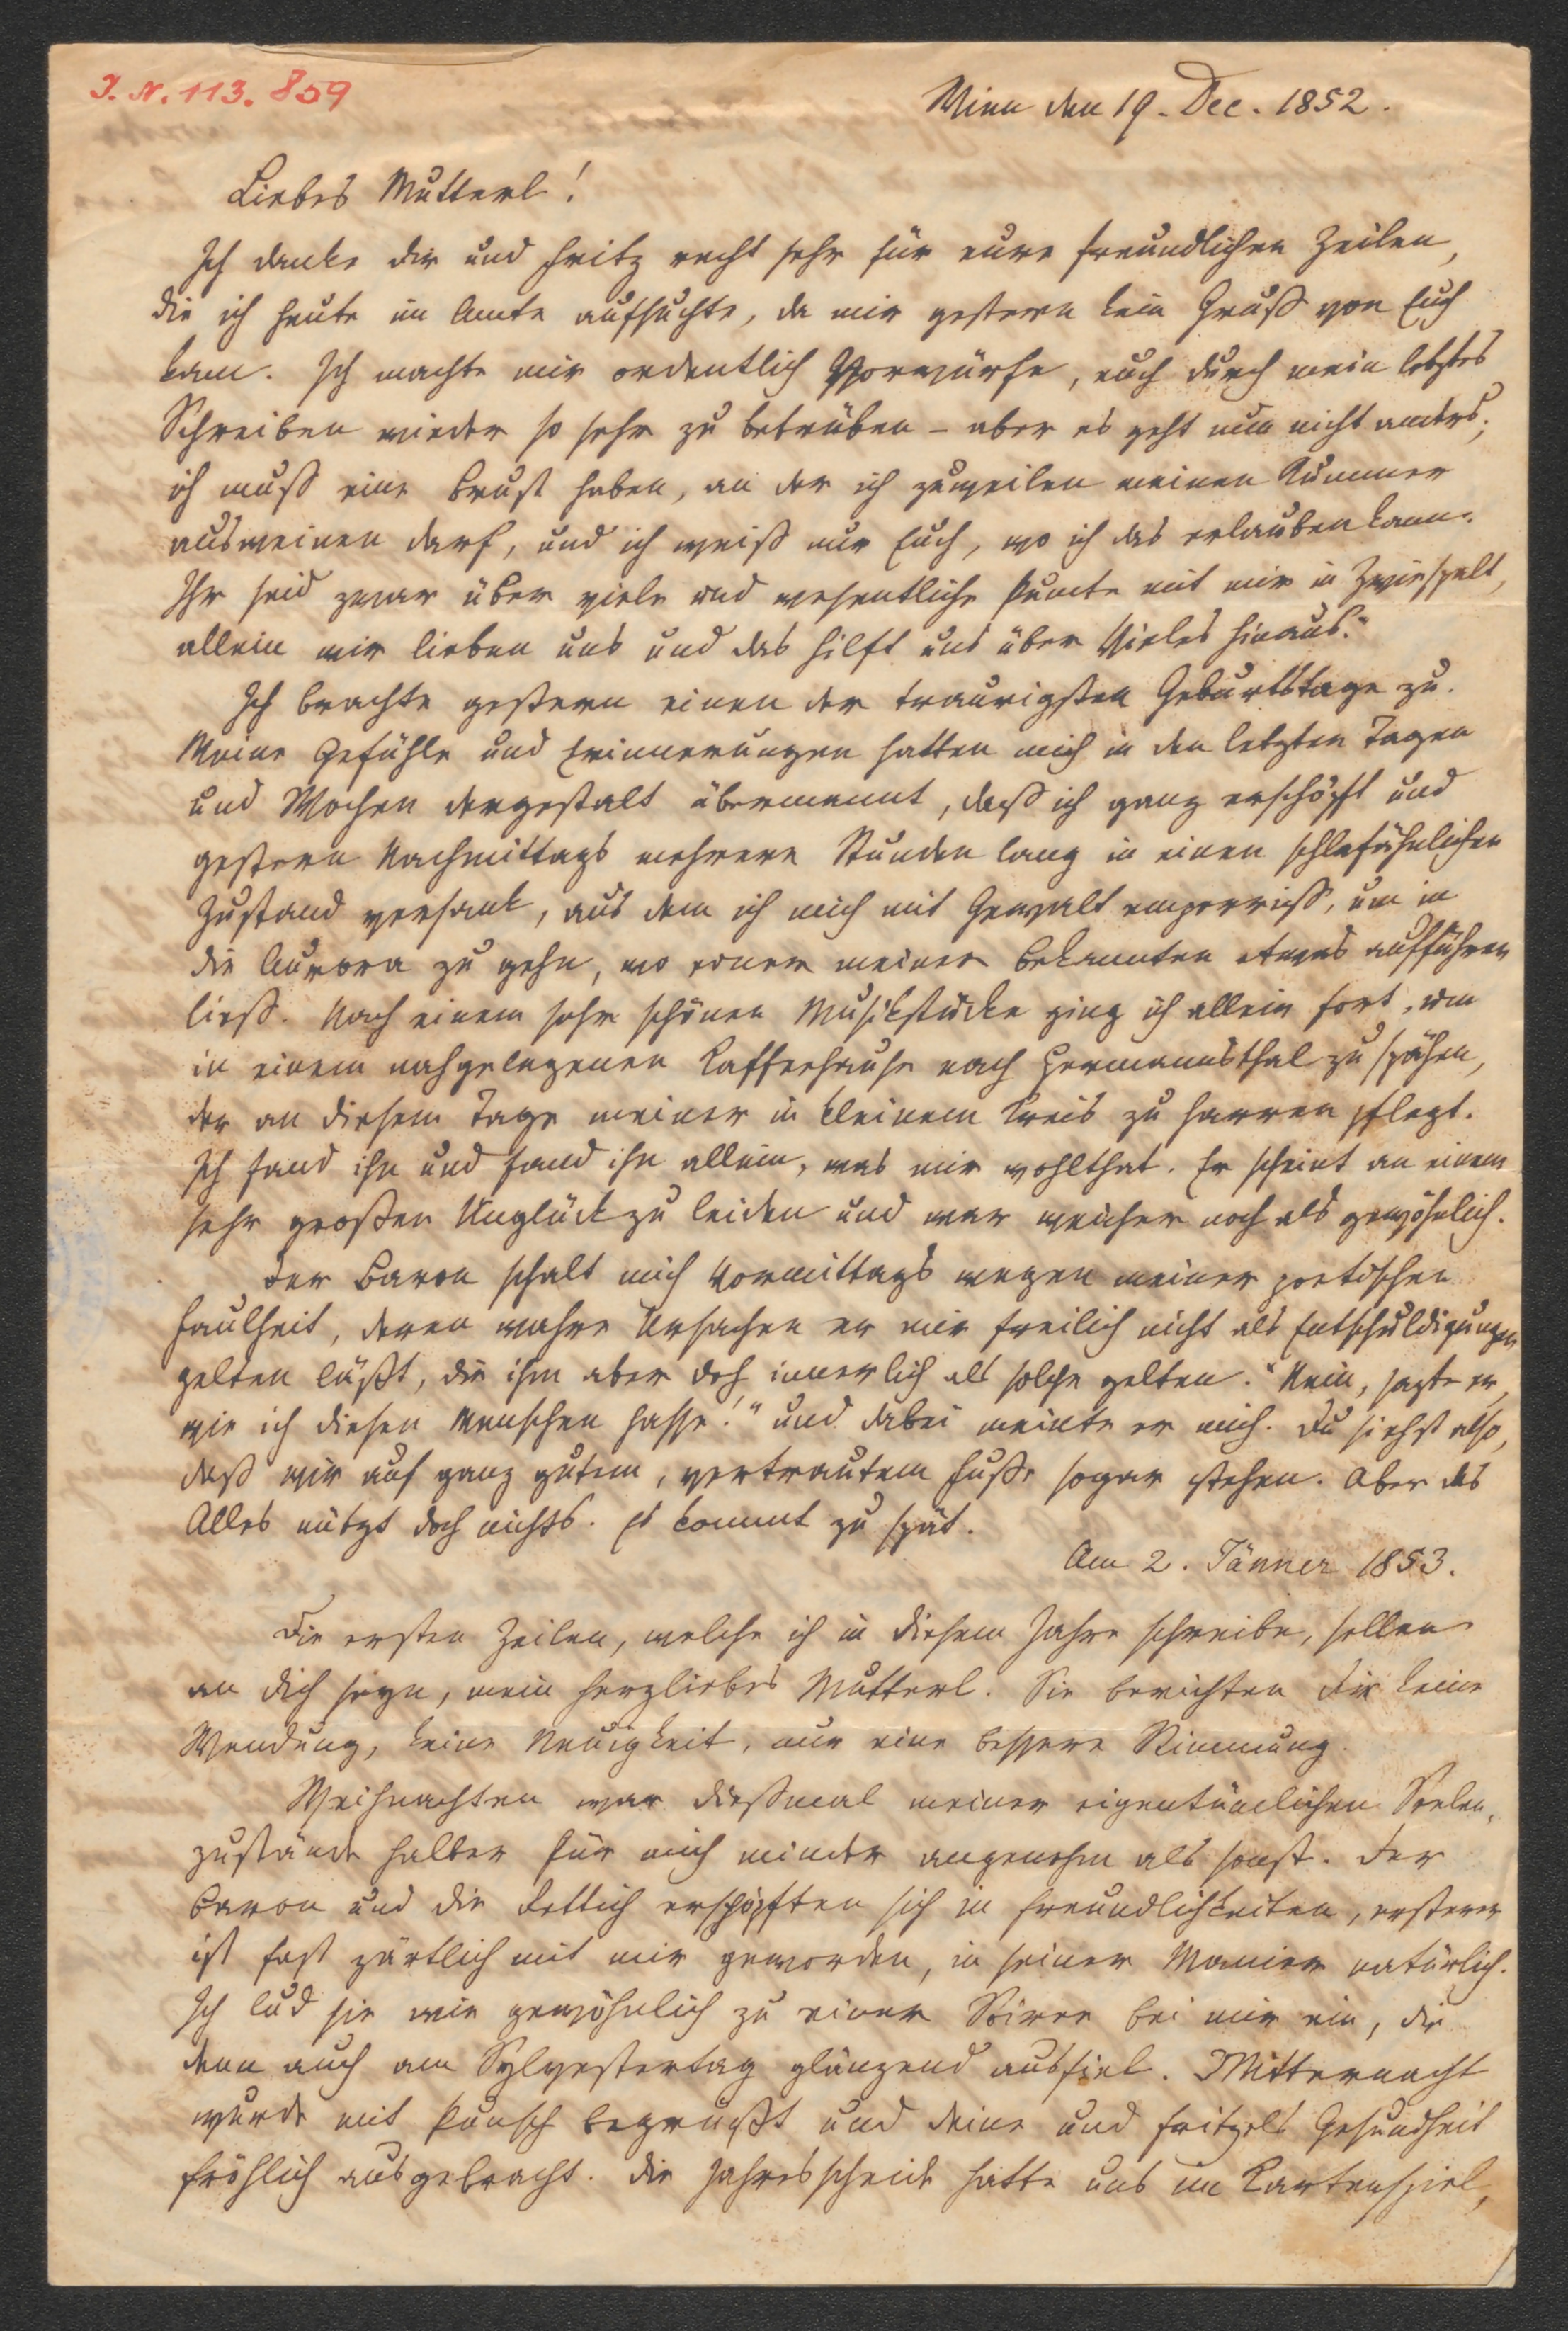 I. N. 113.859
Wien den 19. Dec. 1852.
Liebes Mutterl!
Ich danke dir und Fritz recht sehr für eure freundlichen Zeilen,
die ich heute im Amte aufsuchte, da mir gestern kein Gruß von Euch
kam. Ich machte mir ordentlich Vorwürfe, euch durch mein letztes
Schreiben wieder so sehr zu betrüben – aber es geht nun nicht anders;
ich muß eine Brust haben, an der ich zuweilen meinen Kummer
ausweinen darf, und ich weiß nur Euch, wo ich das erlauben kann.
Ihr seid zwar über viele und wesentliche Puncte mit mir in Zwiespalt,
allein wir lieben uns und das hilft uns über Vieles hinaus.
Ich brachte gestern einen der traurigsten Geburtstage zu.
Meine Gefühle und Erinnerungen hatten mich in den letzten Tagen
und Wochen dergestalt übermannt, daß ich ganz erschöpft und
gestern Nachmittags mehrere Stunden lang in einen schlafähnlichen
Zustand versank, aus dem ich mich mit Gewalt emporriß, um in
die Aurora zu gehn, wo einer meiner Bekannten etwas aufführen
ließ. Nach einem sehr schönen Musikstücke ging ich allein fort, um
in einem nahgelegenen Kaffeehause nach Hermannsthal zu spähen,
der an diesem Tage meiner in kleinem Kreis zu harren pflegt.
Ich fand ihn und fand ihn allein, was mir wohlthat. Er scheint an einem
sehr großen Unglück zu leiden und war weicher noch als gewöhnlich.
Der Baron schalt mich Vormittags wegen meiner poetischen
Faulheit, deren wahre Ursachen er mir freilich nicht als Entschuldigungen
gelten läßt, die ihm aber doch innerlich als solche gelten. "Nein, sagte er,
wie ich diesen Menschen hasse!" und dabei meinte er mich. Du siehst also,
daß wir auf ganz gutem, vertrautem Fuße sogar stehen. Aber das
Alles nützt doch nichts. Es kommt zu spät.
Am 2. Jänner 1853.
Die ersten Zeilen, welche ich in diesem Jahre schreibe, sollen
an dich seyn, mein herzliebes Mutterl. Sie berichten dir keine
Wendung, keine Neuigkeit, nur eine bessere Stimmung.
Weihnachten war dießmal meiner eigentümlichen Seelen-
zustände halber für mich minder angenehm als sonst. Der
Baron und die Rettich erschöpften sich in Freundlichkeiten, ersterer
ist fast zärtlich mit mir geworden, in seiner Manier natürlich.
Ich lud sie wie gewöhnlich zu einer Soiree bei mir ein, die
denn auch am Sylvestertag glänzend ausfiel. Mitternacht
wurde mit Punsch begrüßt und deine und Fritzels Gesundheit
fröhlich ausgebracht. Die Jahresscheide hatte uns im Kartenspiel,